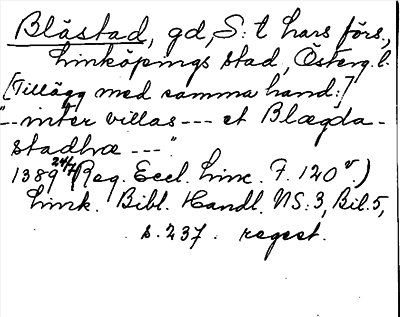 Blåstad, gd, S:t Lars förs.,
Linköpings stad, Österg. l.
[Tillägg med samma hand:]
"-- inter villas --- et Blægda-
stadhæ ---"
1389 24/7 (Reg. Eccl. Linc. F. 120v.)
Link. Bibl. Handl. NS:3, Bil.5,
s. 237. regest.